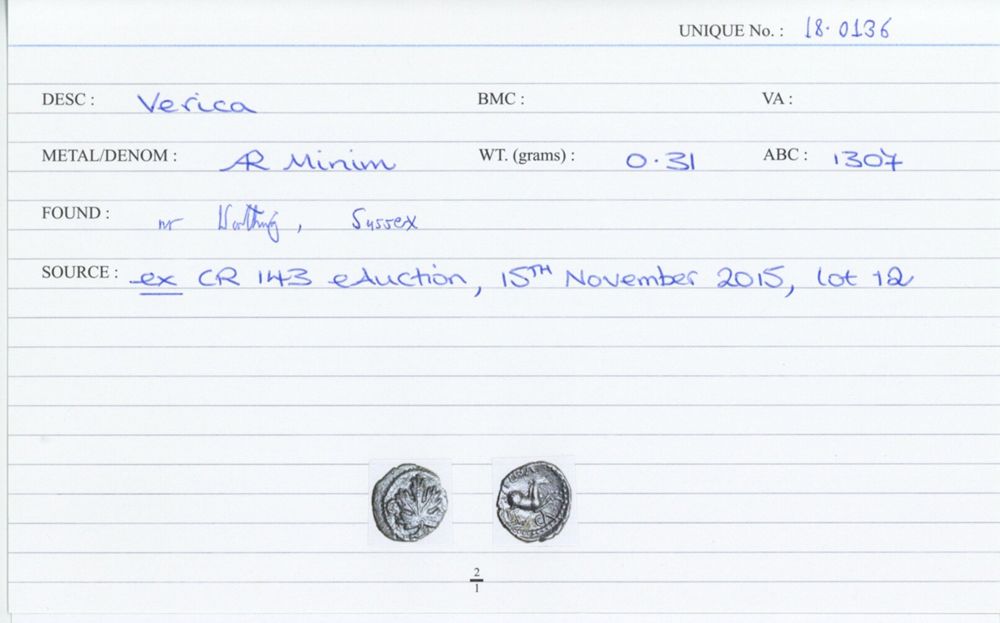 UNIQUE No. : 18.0136
DESC : Verica BMC : VA :
METAL/DENOM : AR Minim WT. (grams) : 0.31 ABC : 1307
FOUND : nr Worthing, Sussex
SOURCE : ex CR 143 eAuction, 15TH November 2015, lot 12
2
1